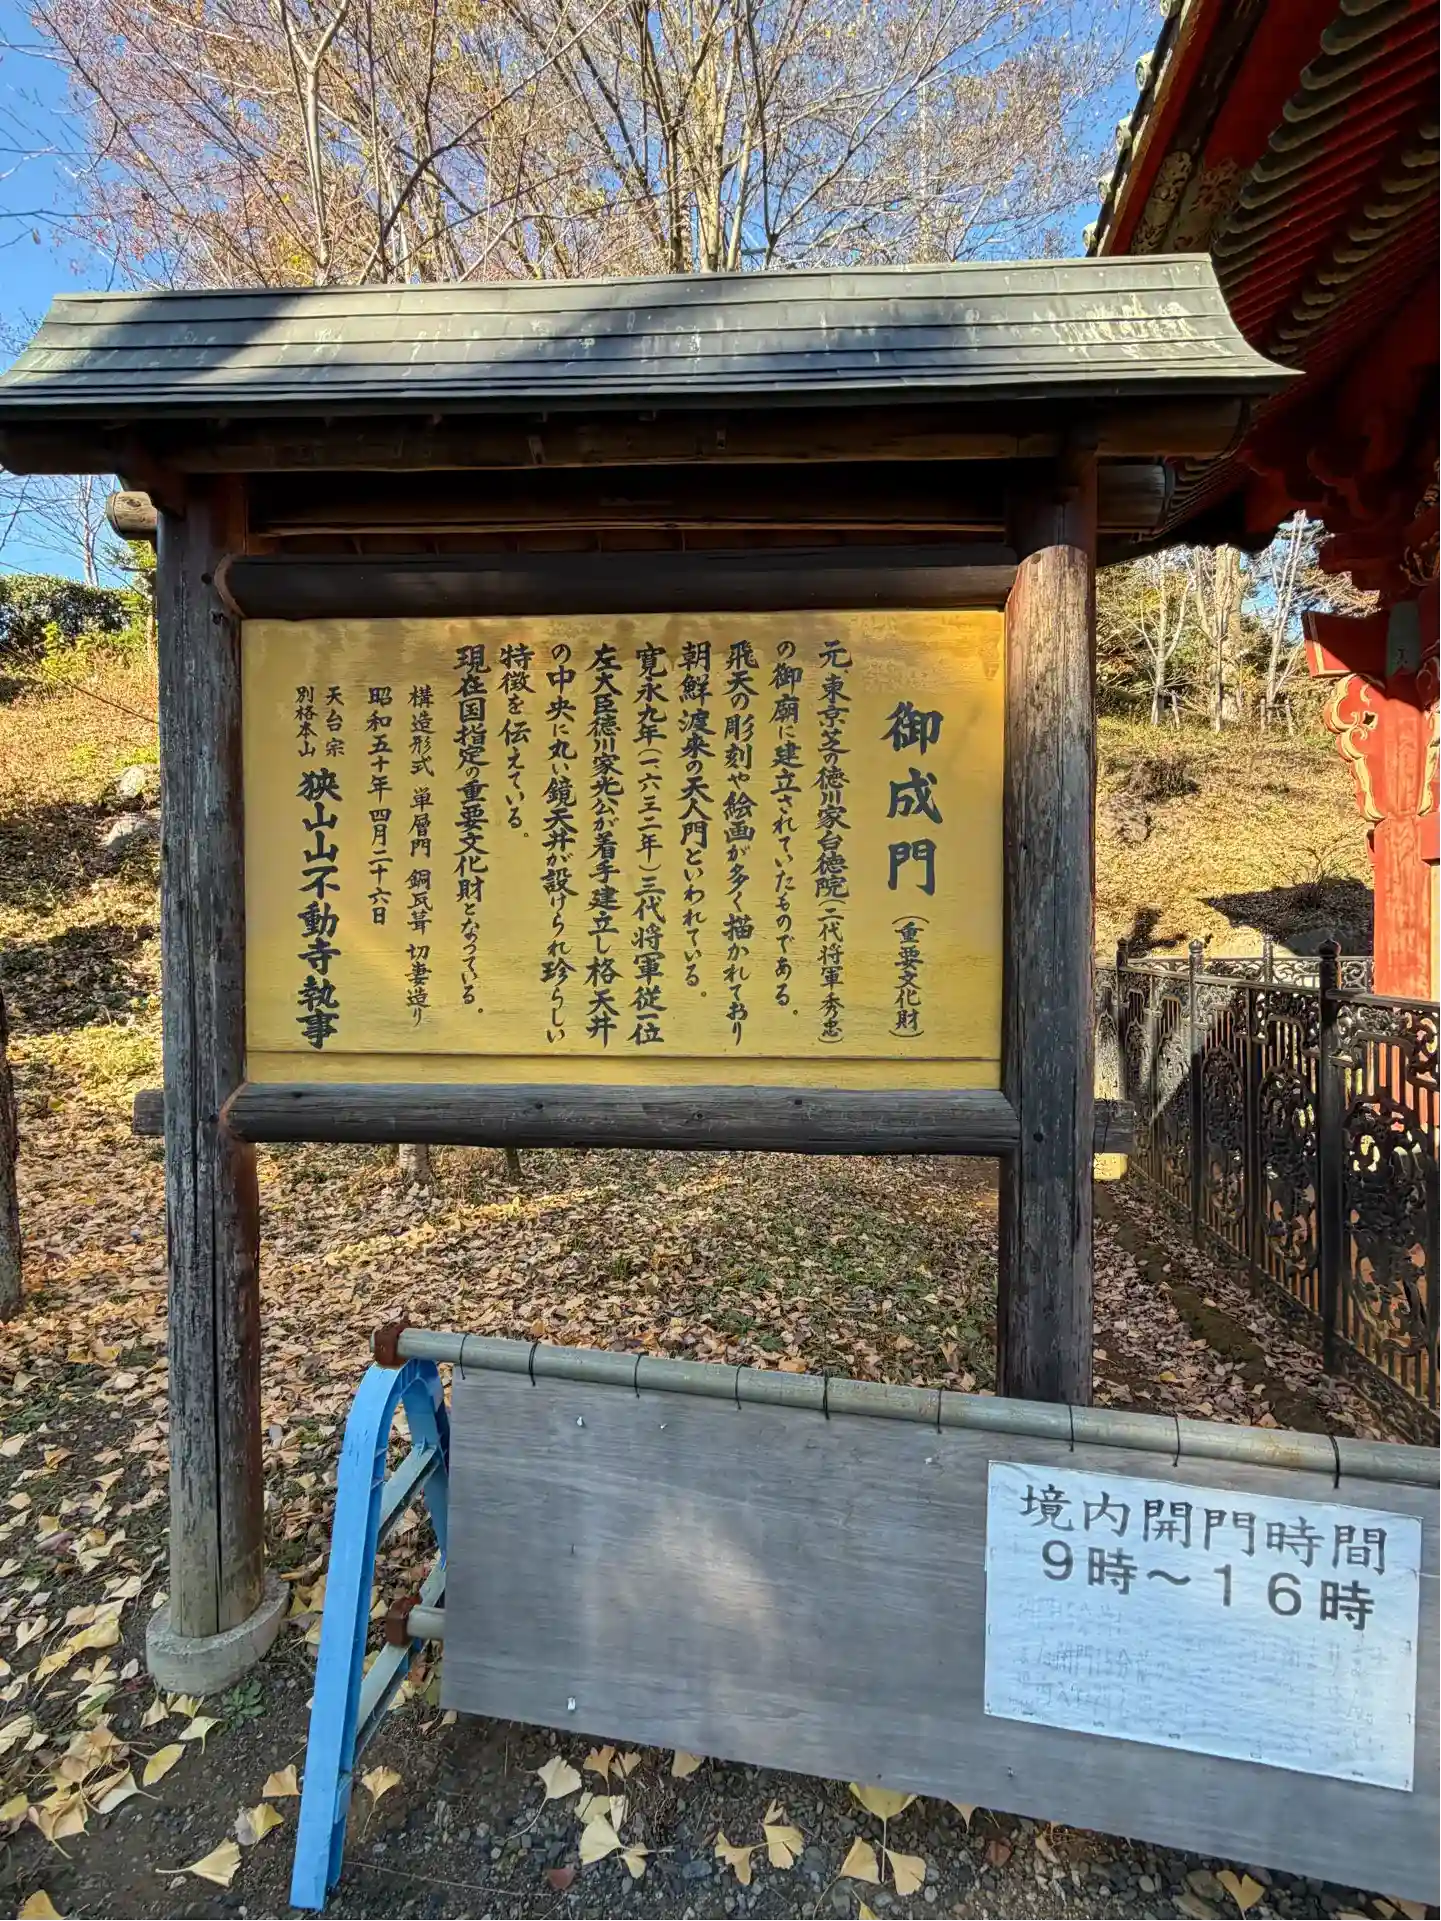 御成門（重要文化財）
元、東京・芝の徳川家台徳院（二代将軍秀忠）
の御廟に建立されていたものである。
飛天の彫刻や絵画が多く描かれており
朝鮮渡来の天人門といわれている。
寛永九年（一六三二年）三代将軍従一位
左大臣徳川家光公が着手建立し格天井
の中央に丸い鏡天井が設けられ珍らしい
特徴を伝えている。
現在国指定の重要文化財となっている。
構造形式 単層門 銅瓦葺 切妻造り
昭和五十年四月二十六日
天台宗
別格本山 狭山山不動寺執事
境内開門時間
9時～16時